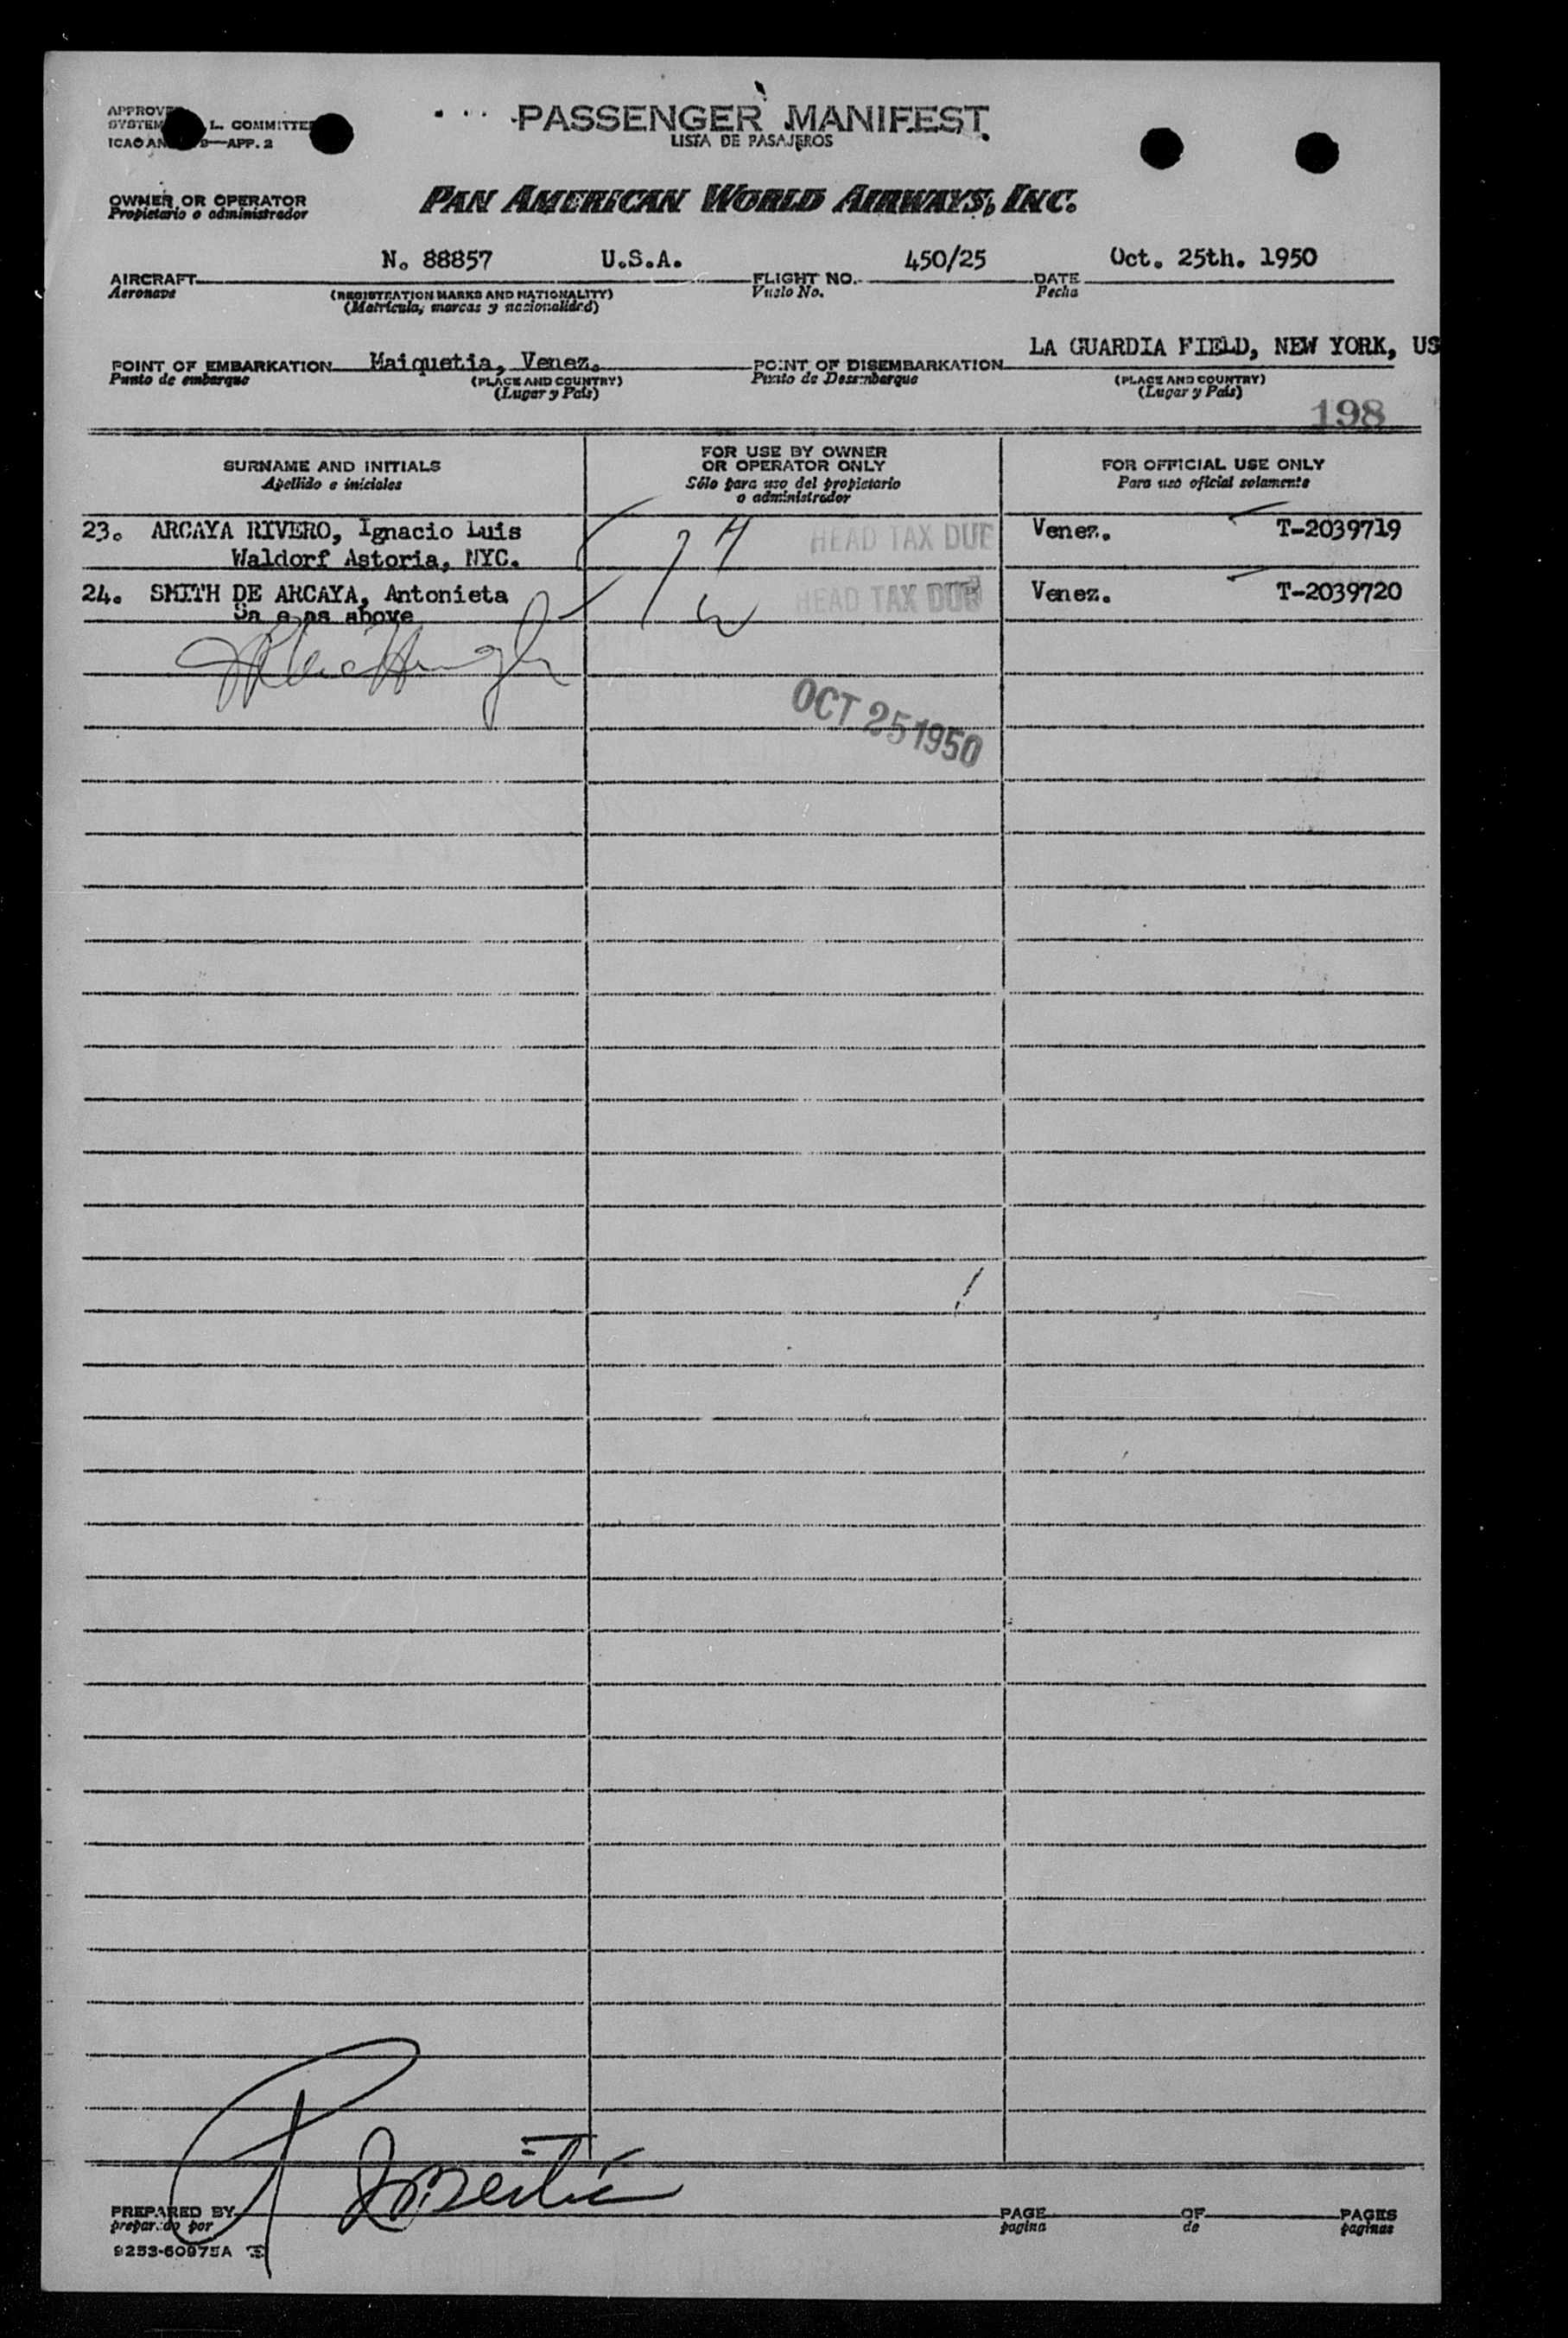 PASSENGER MANIFEST
LISTA DE PASAJEROS
L. COMMITTEE
APP. 2
OWNER OR OPERATOR
Propietario o administrador
PAN AMERICAN WORLD AIRWAYS, INC.
AIRCRAFT N. 88857 U.S.A. FLIGHT NO. 450/25 DATE Oct. 25th. 1950
Aeronave (REGISTRATION MARKS AND NATIONALITY) Vuelo No. Fecha
(Matrícula, marcas y nacionalidad)
POINT OF EMBARKATION Maiquetia, Venez. POINT OF DISEMBARKATION LA GUARDIA FIELD, NEW YORK, US
Punto de embarque (PLACE AND COUNTRY) Punto de Desembarque (PLACE AND COUNTRY)
(Lugar y País) (Lugar y País)
198
SURNAME AND INITIALS
Apellido e iniciales
FOR USE BY OWNER
OR OPERATOR ONLY
Sólo para uso del propietario
o administrador
FOR OFFICIAL USE ONLY
Para uso oficial solamente
23. ARCAYA RIVERO, Ignacio Luis HEAD TAX DUE Venez. T-2039719
Waldorf Astoria, NYC.
24. SMITH DE ARCAYA, Antonieta HEAD TAX DUE Venez. T-2039720
Sa e as above
OCT 25 1950
PREPARED BY PAGE OF PAGES
preparado por pagina de paginas
9253-60975A